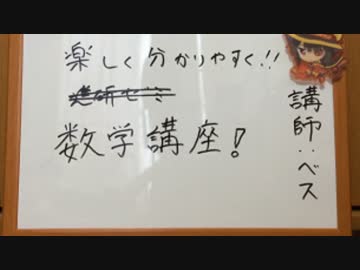 楽しく分かりやすく!!
進研ゼミ
数学講座!
講師:ベス